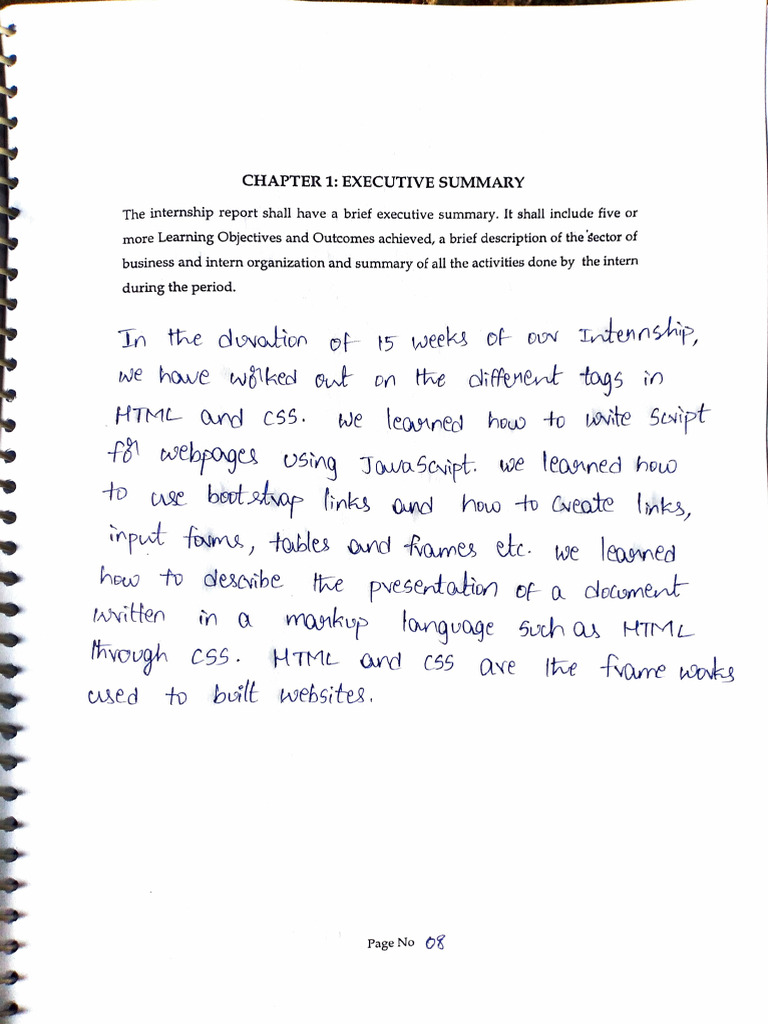 CHAPTER 1: EXECUTIVE SUMMARY
The internship report shall have a brief executive summary. It shall include five or
more Learning Objectives and Outcomes achieved, a brief description of the sector of
business and intern organization and summary of all the activities done by the intern
during the period.
In the duration of 15 weeks of our Internship,
we have worked out on the different tags in
HTML and CSS. we learned how to write script
for webpages using JavaScript. we learned how
to use bootstrap links and how to create links,
input forms, tables and frames etc. we learned
how to describe the presentation of a document
written in a markup language such as HTML
through CSS. HTML and CSS are the frame works
used to built websites.
Page No 08